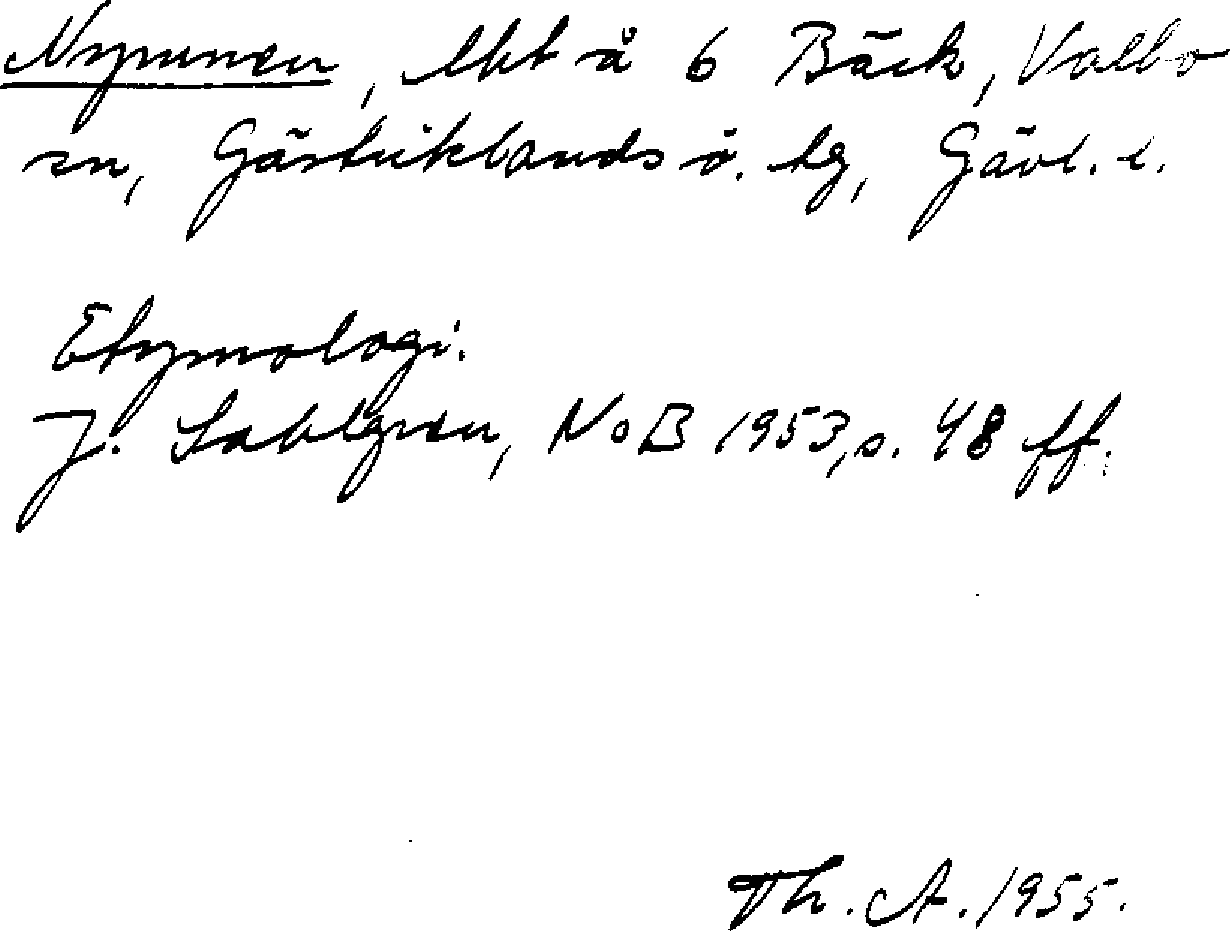 Nymunen, lht å 6 Bäck, Valbo
sn, Gästriklands ö. hg, Gävl. l.
Etymologi.
J. Sahlgren, NoB 1953, s. 48 ff.
Th. A. 1955.